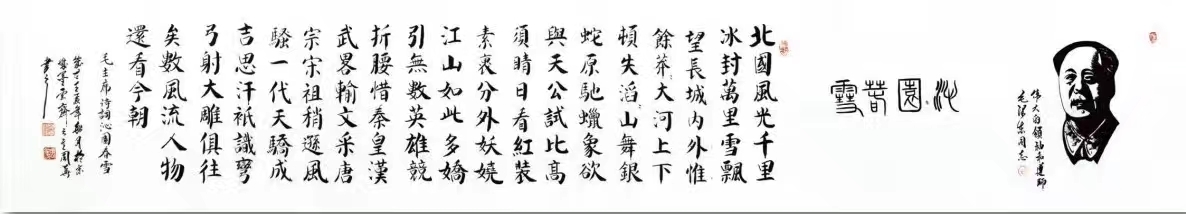 偉大的領袖和導師
毛澤東同志
沁園春雪
北國風光千里
冰封萬里雪飄
望長城内外惟
餘莽々大河上下
頓失滔々山舞銀
蛇原馳蠟象欲
與天公試比高
須晴日看紅裝
素裹分外妖嬈
江山如此多嬌
引無數英雄競
折腰惜秦皇漢
武畧輸文采唐
宗宋祖稍遜風
騷一代天驕成
吉思汗祇識彎
弓射大雕俱往
矣數風流人物
還看今朝
毛主席詩詞沁園春雪